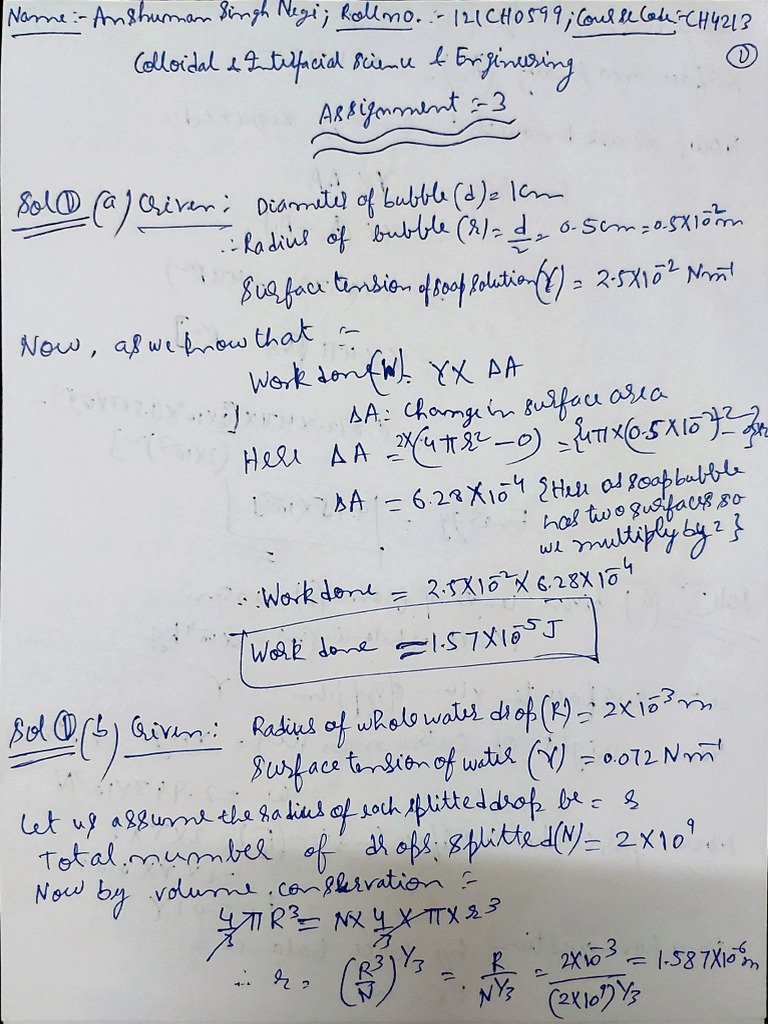 Name:- Anshuman Singh Negi; Roll no. :- 121CH0599; Course Code:-CH4213
Colloidal & Interfacial Science & Enginnering
①
Assignment :- 3
Sol ① (a) Given: Diameter of bubble (d) = 1cm
∴ Radius of bubble (r) = d/2 = 0.5cm = 0.5×10⁻²m
Surface tension of soap solution (γ) = 2.5×10⁻² Nm⁻¹
Now, as we know that :-
Work done (W) = γ × ΔA
ΔA: Change in surface area
Here ΔA = 2×(4πr² - 0) = {4π×(0.5×10⁻²)² - 0}×2
∴ ΔA = 6.28×10⁻⁴ {Here as soap bubble
has two surfaces so
we multiply by 2}
∴ Work done = 2.5×10⁻² × 6.28×10⁻⁴
Work done = 1.57×10⁻⁵ J
Sol ① (b) Given: Radius of whole water drop (R) = 2×10⁻³ m
Surface tension of water (γ) = 0.072 Nm⁻¹
Let us assume the radius of each splitted drop be = r
Total number of drops splitted (N) = 2×10⁹
Now by volume conservation :-
4/3 πR³ = N× 4/3 × π × r³
∴ r = (R³/N)^1/3 = R/N^1/3 = 2×10⁻³/(2×10⁹)^1/3 = 1.587×10⁻⁶m